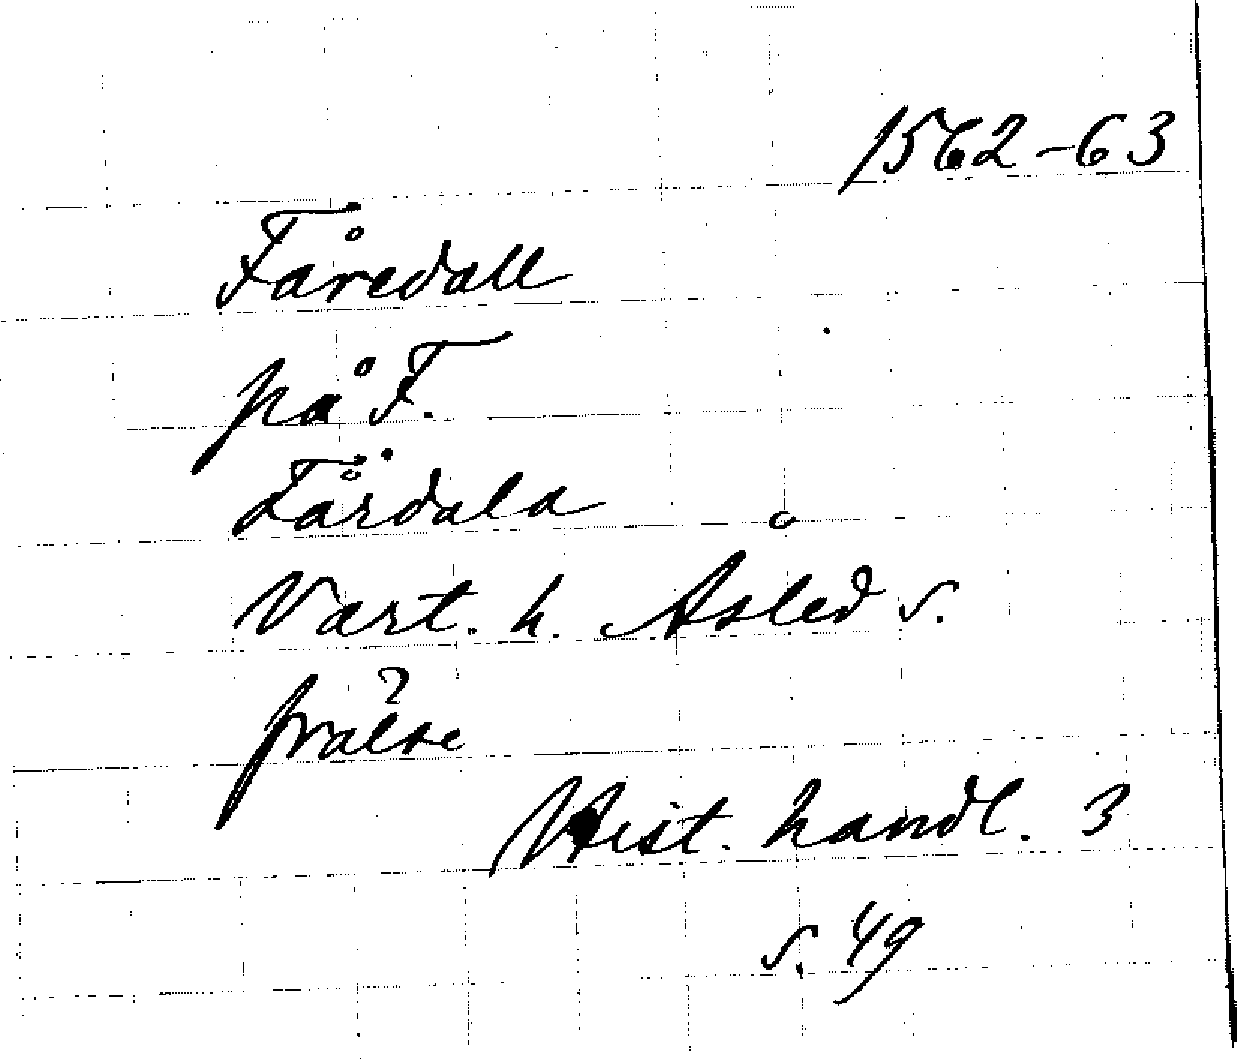 1562-63
Fåredall
på F.
Fårdala
Vart. h. Åsled s.
frälse
Hist. handl. 3
s. 49